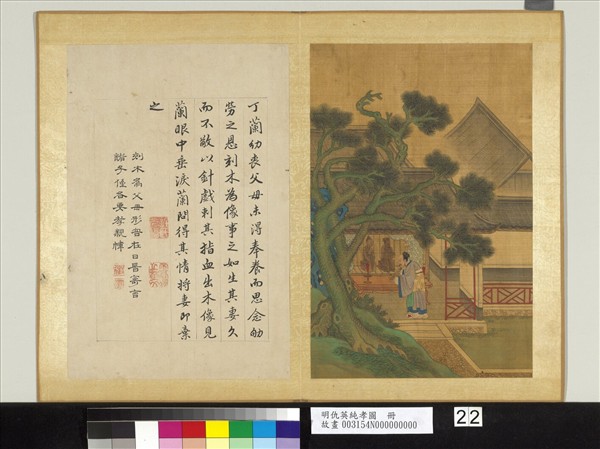 丁蘭幼喪父母未得奉養而思念劬
勞之恩刻木為像事之如生其妻久
而不敬以針戲刺其指血出木像見
蘭眼中垂淚蘭問得其情將妻即棄
之
刻木為父母形容在日
明仇英純孝圖 冊
故畫003154N000000000
22